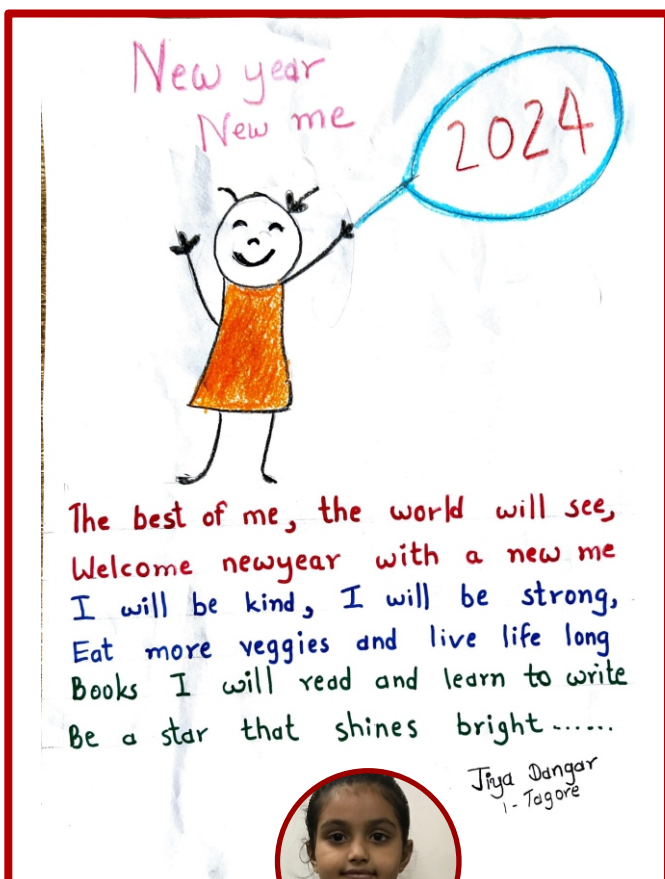 New year
New me
2024
The best of me, the world will see,
Welcome newyear with a new me
I will be kind, I will be strong,
Eat more veggies and live life long
Books I will read and learn to write
Be a star that shines bright......
Jiya Dangar
1 - Tagore